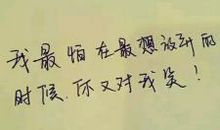 我最怕在最想放弃的
时候.你又对我笑!